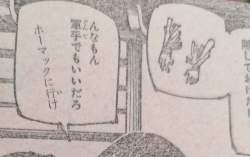 んなもん
軍手でもいいだろ
ホーマックに行け